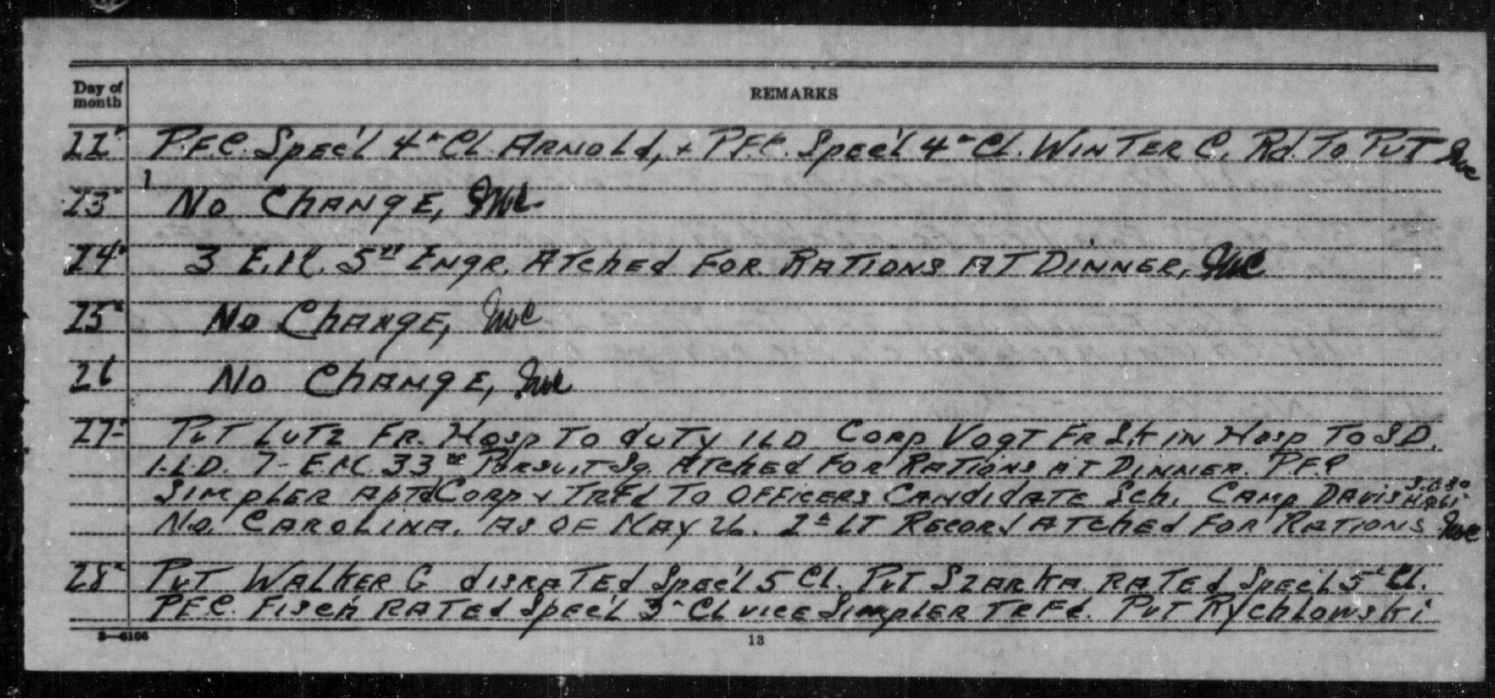 Day of month
REMARKS
22" P.F.C. Spec'l 4" Cl. Arnold, + P.F.C. Spec'l 4" Cl. Winter C. Rd. To Pvt
23" No Change,
24" 3 E.M. 5" Engr. Atched For Rations At Dinner,
25" No Change,
26 No Change,
27- Pvt Lutz Fr. Hosp To duty ILD Corp Vogt Fr Sk in Hosp To S.D.
I.L.D. 7- E.M. 33rd Pursuit Sq. Atched For Rations At Dinner. P.F.C
Simpler Aptd Corp + TRFd To Officers Candidate Sch. Camp Davis
No. Carolina. As of May 26. 2" Lt Record Atched For Rations
28" Pvt Walker G disrated Spec'l 5 Cl. Pvt Szarka rated Spec'l 5" Cl.
P.F.C. Fisch rated Spec'l 3" Cl vice Simpler TRFd. Pvt Rychlowski
3—6106
13